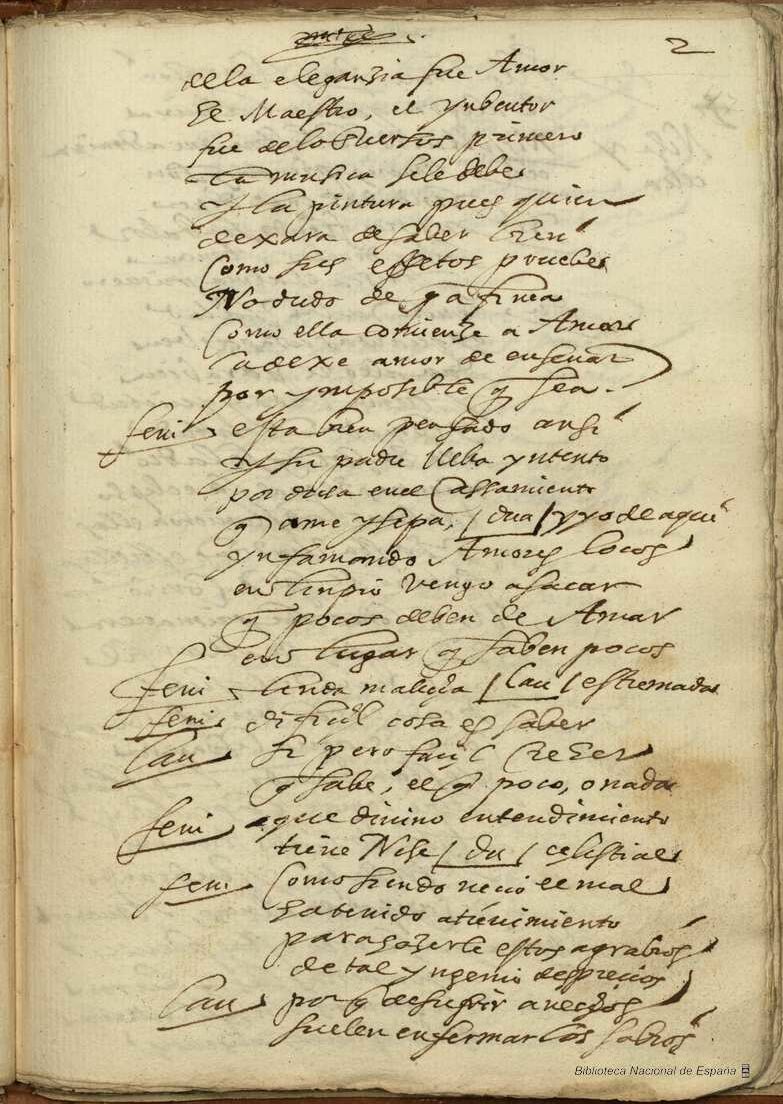 2
dela eleganzia fue Amor
el Maestro, el ynbentor
fue delos versos primero
La musica sele debe
y la pintura pues quien
dexara de saber bien
como sus effetos pruebe
No dudo de q a finea
como ella comienze a Amar
la dexe amor de enseñar
por ymposible q sea.
feni esta bien pensado ansi
y su padre lleba yntento
por dicha en el cassamiento
q ame y sepa, / du / y yo de aqui
ynfamando Amores locos
en limpio vengo a sacar
q pocos deben de Amar
en lugar q saben pocos
feni linda malicia / Lau / estremada
feni dificil cosa es saber
Lau si pero facil creher
q sabe, el q poco, o nada
feni que divino entendimiento
tiene Nise / du / celestial
feni como siendo necio el mal
ha tenido atrevimiento
para hazerle estos agrabios
de tal yngenio desprecios
Lau porq de sufrir a necios
suelen enfermar los sabios
Biblioteca Nacional de España